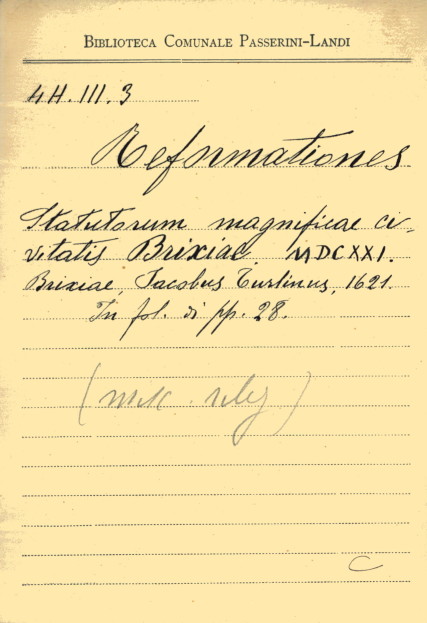 BIBLIOTECA COMUNALE PASSERINI-LANDI
4H.III.3
Reformationes
Statutorum magnificae ci-
vitatis Brixiae. MDCXXI.
Brixiae, Jacobus Turlinus, 1621.
In fol. di pp. 28.
C